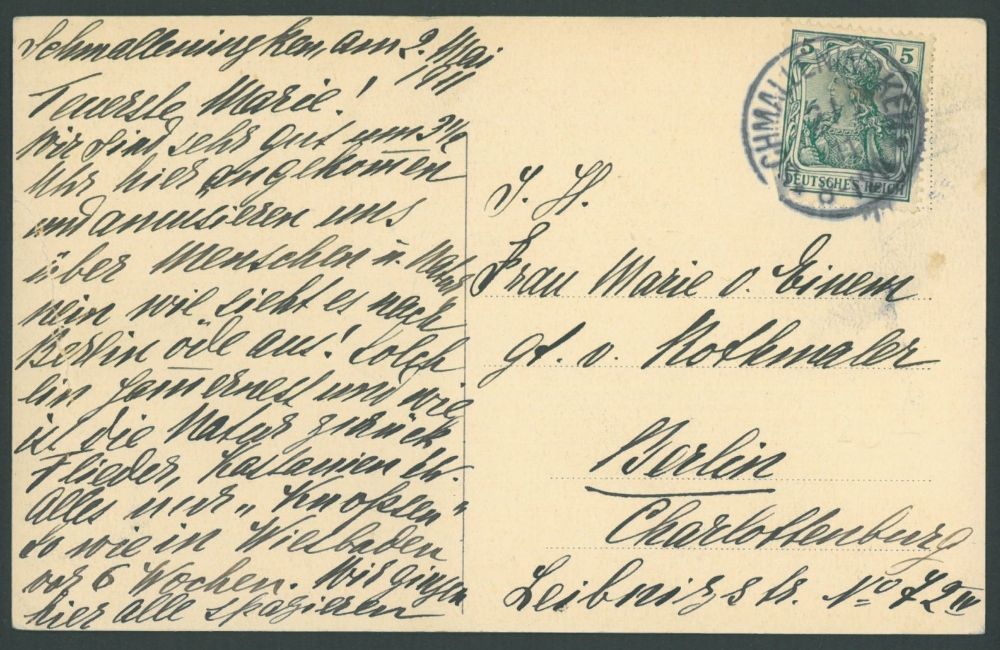 Schmalleningken, am 2. Mai
1911
Teuerste Marie!
Wir sind sehr gut um
Uhr hier angekomen
und amusieren uns
über Menschen u. Natur
nein wie sieht es nach
Berlin öde aus! Solch
ein Jamernest und wie
ist die Natur zurück
Flieder, Kastanien etc.
Alles nur „Knospen"
So wie in Wiesbaden
vor 6 Wochen. Wir gingen
hier alle spazieren
5 5
DEUTSCHES REICH
SCHMALLENINGKEN
I. H.
Frau Marie v. Einem
gt. v. Rothmaler
Berlin
Charlottenburg
Leibnizstr. No 72 IV